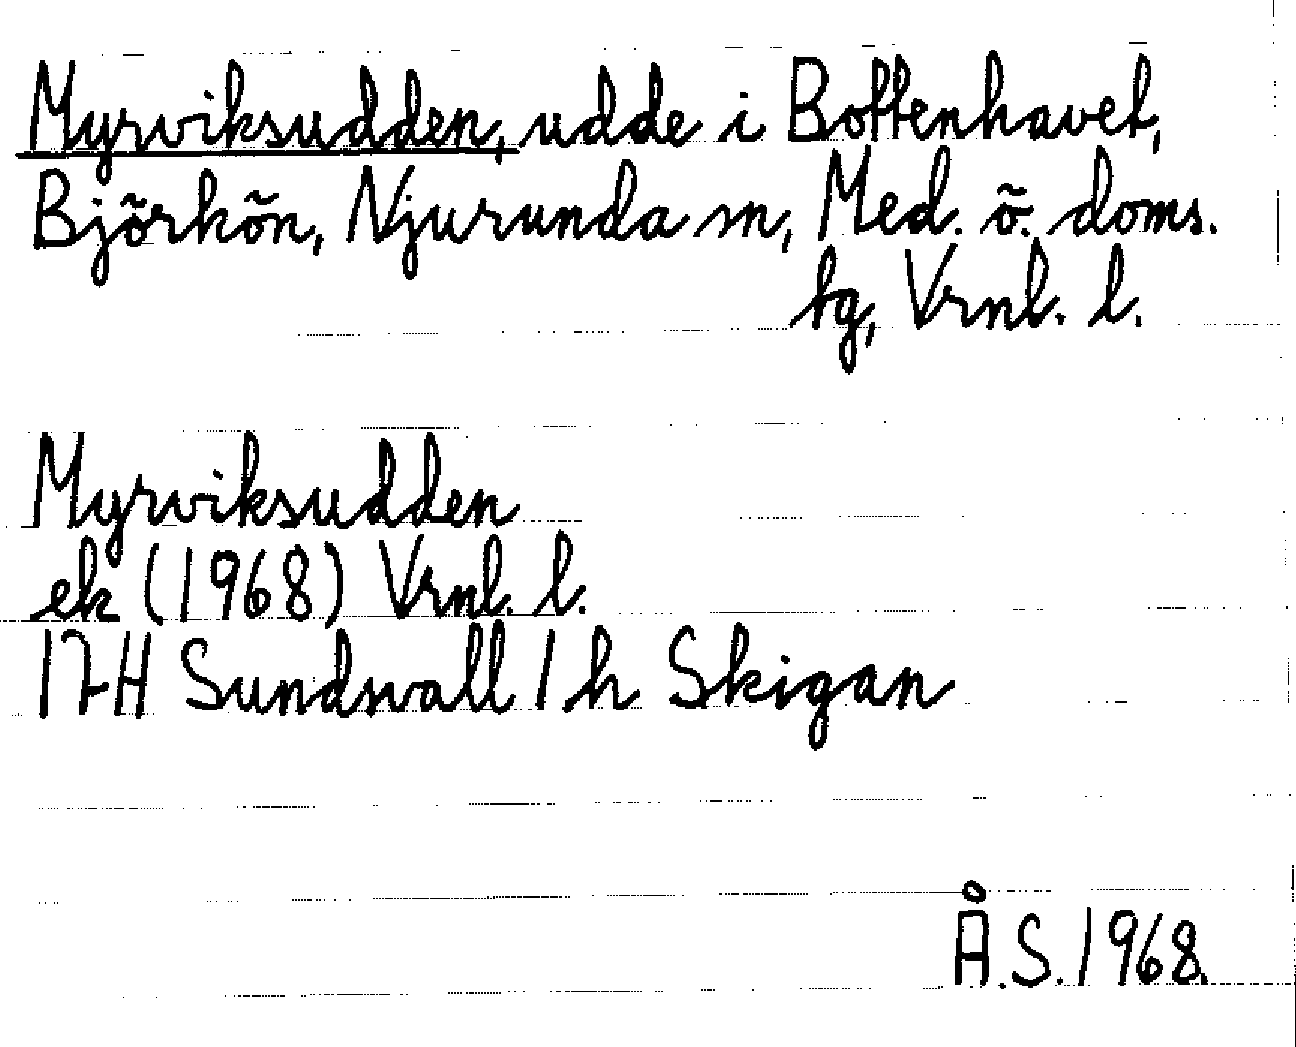 Myrviksudden, udde i Bottenhavet,
Björkön, Njurunda sn, Med. ö. doms.
tg, Vrnl. l.
Myrviksudden
ek (1968) Vrnl. l.
17H Sundsvall 1h Skigan
Å.S. 1968.